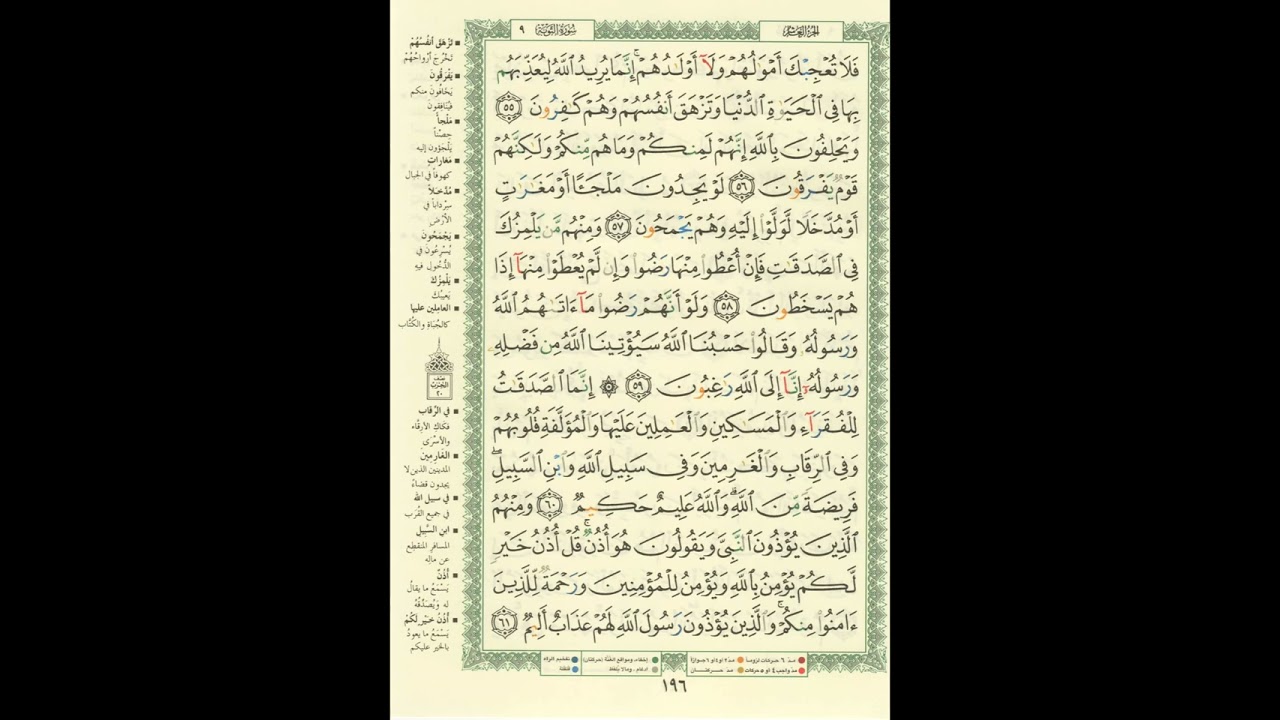 الجزء العاشر
سورة التوبة ٩
فَلَا تُعْجِبْكَ أَمْوَٰلُهُمْ وَلَآ أَوْلَٰدُهُمْ ۚ إِنَّمَا يُرِيدُ ٱللَّهُ لِيُعَذِّبَهُم
بِهَا فِى ٱلْحَيَوٰةِ ٱلدُّنْيَا وَتَزْهَقَ أَنفُسُهُمْ وَهُمْ كَٰفِرُونَ ٥٥
وَيَحْلِفُونَ بِٱللَّهِ إِنَّهُمْ لَمِنكُمْ وَمَا هُم مِّنكُمْ وَلَٰكِنَّهُمْ
قَوْمٌ يَفْرَقُونَ ٥٦ لَوْ يَجِدُونَ مَلْجَـًٔا أَوْ مَغَٰرَٰتٍ
أَوْ مُدَّخَلًا لَّوَلَّوْا۟ إِلَيْهِ وَهُمْ يَجْمَحُونَ ٥٧ وَمِنْهُم مَّن يَلْمِزُكَ
فِى ٱلصَّدَقَٰتِ فَإِنْ أُعْطُوا۟ مِنْهَا رَضُوا۟ وَإِن لَّمْ يُعْطَوْا۟ مِنْهَآ إِذَا
هُمْ يَسْخَطُونَ ٥٨ وَلَوْ أَنَّهُمْ رَضُوا۟ مَآ ءَاتَىٰهُمُ ٱللَّهُ
وَرَسُولُهُۥ وَقَالُوا۟ حَسْبُنَا ٱللَّهُ سَيُؤْتِينَا ٱللَّهُ مِن فَضْلِهِۦ
وَرَسُولُهُۥٓ إِنَّآ إِلَى ٱللَّهِ رَٰغِبُونَ ٥٩ ۞ إِنَّمَا ٱلصَّدَقَٰتُ
لِلْفُقَرَآءِ وَٱلْمَسَٰكِينِ وَٱلْعَٰمِلِينَ عَلَيْهَا وَٱلْمُؤَلَّفَةِ قُلُوبُهُمْ
وَفِى ٱلرِّقَابِ وَٱلْغَٰرِمِينَ وَفِى سَبِيلِ ٱللَّهِ وَٱبْنِ ٱلسَّبِيلِ ۖ
فَرِيضَةً مِّنَ ٱللَّهِ ۗ وَٱللَّهُ عَلِيمٌ حَكِيمٌ ٦٠ وَمِنْهُمُ
ٱلَّذِينَ يُؤْذُونَ ٱلنَّبِىَّ وَيَقُولُونَ هُوَ أُذُنٌ ۚ قُلْ أُذُنُ خَيْرٍ
لَّكُمْ يُؤْمِنُ بِٱللَّهِ وَيُؤْمِنُ لِلْمُؤْمِنِينَ وَرَحْمَةٌ لِّلَّذِينَ
ءَامَنُوا۟ مِنكُمْ ۚ وَٱلَّذِينَ يُؤْذُونَ رَسُولَ ٱللَّهِ لَهُمْ عَذَابٌ أَلِيمٌ ٦١
تَزْهَقَ أَنفُسُهُمْ
تَخْرُجَ أَرْوَاحُهُمْ
يَفْرَقُونَ
يَخَافُونَ منكم
فَيُنَافِقونَ
مَلْجأً
حِصْناً
يَلْجَؤونَ إليه
مَغارات
كهوفاً في الجبال
مُدَّخَلاً
سِرْداباً في
الأرْض
يَجْمَحُونَ
يُسْرِعُونَ في
الدُّخُولِ فيهِ
يَلْمِزُكَ
يَعِيبُكَ
العاملين عليها
كالجُبَاةِ والكُتَّاب
نصف
الحزب
٢٠
في الرِّقاب
فكاكِ الأرِقَّاء
والأسْرَى
الغَارِمِينَ
المدينين الذين لا
يجدون قضاءً
في سبيل الله
في جميع القُرَب
ابن السَّبيل
المسافر المنقطع
عن ماله
أُذُنٌ
يَسْمَعُ ما يقالُ
له ويُصَدِّقُهُ
أُذُنُ خَيْر لكُمْ
يَسْمَعُ ما يعودُ
بالخير عليكم
مدّ ٦ حركات لزوماً مدّ ٢ أو ٤ أو ٦ جوازاً إخفاء، ومواقع الغُنَّة (حركتان) تفخيم الراء
مدّ واجب ٤ أو ٥ حركات مدّ حركتان ادغام، وما لا يُلفَظ قلقلة
١٩٦